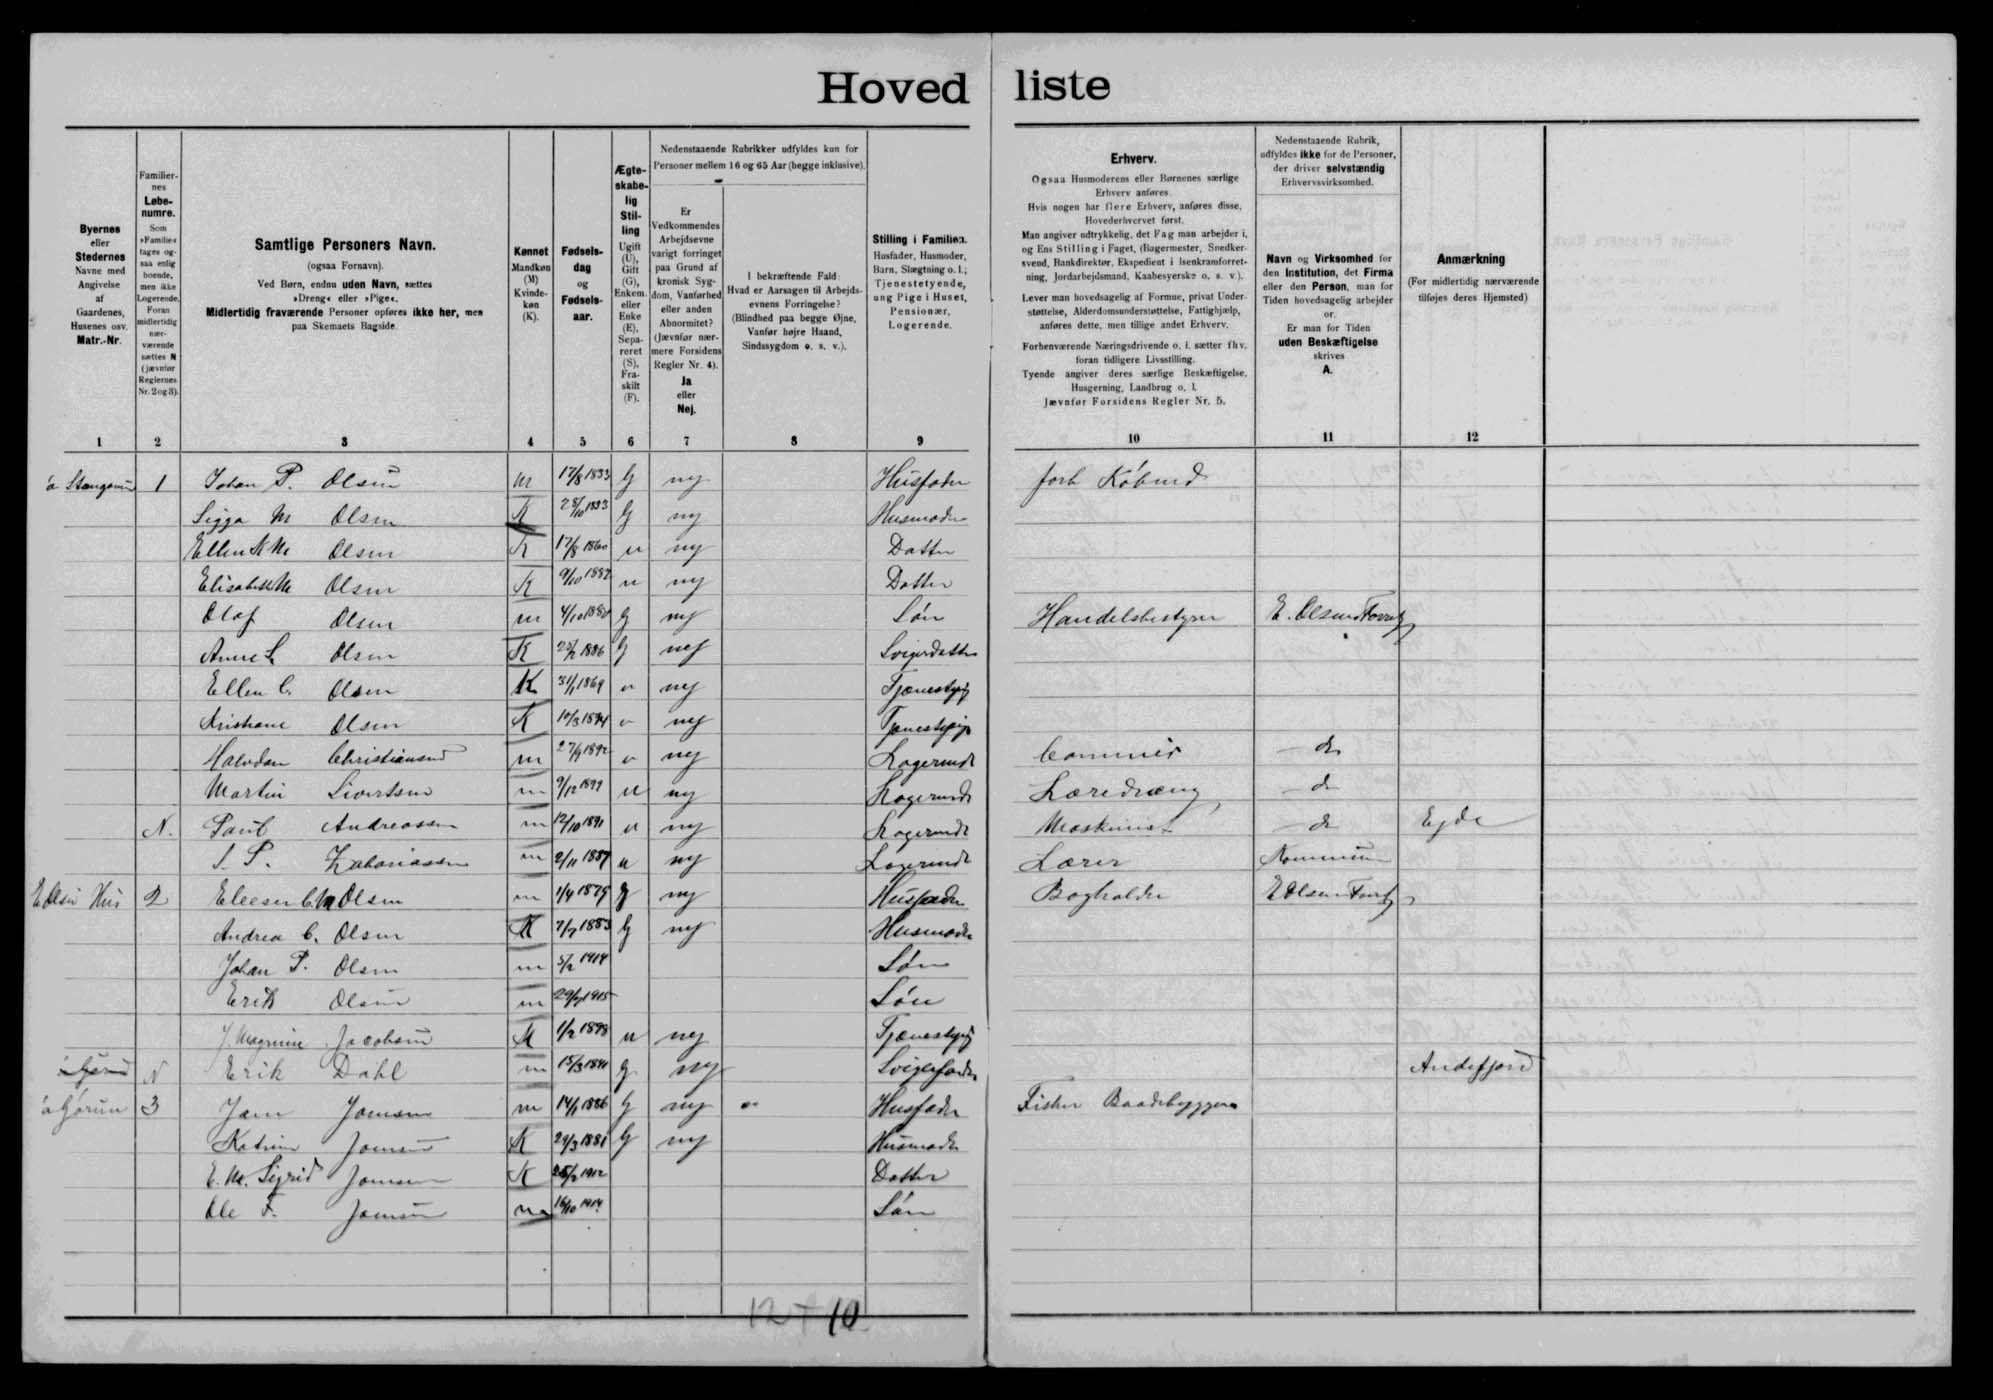 Hovedliste
Byernes eller Stedernes Navne med Angivelse af Gaardenes, Husenes osv. Matr.-Nr.
Familiernes Løbenumre. Som »Familie« tages ogsaa enlig boende, men ikke Logerende. Foran midlertidig nærværende sættes N (jævnfør Reglernes Nr. 2 og 3).
Samtlige Personers Navn. (ogsaa Fornavn). Ved Børn, endnu uden Navn, sættes »Dreng« eller »Pige«. Midlertidig fraværende Personer opføres ikke her, men paa Skemaets Bagside.
Kønnet Mandkøn (M) Kvindekøn (K).
Fødselsdag og Fødselsaar.
Ægteskabelig Stilling Ugift (U), Gift (G), Enkem. eller Enke (E), Separeret (S), Fraskilt (F).
Nedenstaaende Rubrikker udfyldes kun for Personer mellem 16 og 65 Aar (begge inklusive).
Er Vedkommendes Arbejdsevne varigt forringet paa Grund af kronisk Sygdom, Vanførhed eller anden Abnormitet? (Jævnfør nærmere Forsidens Regler Nr. 4). Ja eller Nej.
I bekræftende Fald: Hvad er Aarsagen til Arbejdsevnens Forringelse? (Blindhed paa begge Øjne, Vanfør højre Haand, Sindssygdom o. s. v.).
Stilling i Familien. Husfader, Husmoder, Barn, Slægtning o. l.; Tjenestetyende, ung Pige i Huset, Pensionær, Logerende.
Erhverv.
Ogsaa Husmoderens eller Børnenes særlige Erhverv anføres.
Hvis nogen har flere Erhverv, anføres disse, Hovederhvervet først.
Man angiver udtrykkelig, det Fag man arbejder i, og Ens Stilling i Faget, (Bagermester, Snedkersvend, Bankdirektør, Ekspedient i Isenkramforretning, Jordarbejdsmand, Kaabesyerske o. s. v.).
Lever man hovedsagelig af Formue, privat Understøttelse, Alderdomsunderstøttelse, Fattighjælp, anføres dette, men tillige andet Erhverv.
Forhenværende Næringsdrivende o. l. sætter fhv. foran tidligere Livsstilling.
Tyende angiver deres særlige Beskæftigelse, Husgerning, Landbrug o. l.
Jævnfør Forsidens Regler Nr. 5.
Nedenstaaende Rubrik, udfyldes ikke for de Personer, der driver selvstændig Erhvervsvirksomhed.
Navn og Virksomhed for den Institution, det Firma eller den Person, man for Tiden hovedsagelig arbejder for. Er man for Tiden uden Beskæftigelse skrives A.
Anmærkning (For midlertidig nærværende tilføjes deres Hjemsted)
1 2 3 4 5 6 7 8 9 10 11 12
1 Johan P. Olsen M 17/8 1833 G nej Husfader Købmd
Sigga M Olsen K 28/10 1833 G nej Husmoder
Ellen K M Olsen K 17/8 1860 u nej Datter
Elisabeth M Olsen K 9/10 1882 u nej Datter
Olaf Olsen m 4/10 1880 G nej Søn Handelsbestyrer E. Olsens Forretg
Anne S. Olsen K 1886 G nej Svigerdatter
Ellen C. Olsen K 31/1 1869 u nej Tjenestepig
Kristiane Olsen K 1894 u nej Tjenestepige
Halvdan Christiansen m 27/9 1892 u nej Logerende Commis do
Martin Sivertsen m 9/12 1899 u nej Logerende Læredreng do
N. Paul Andreasen m 12/10 1891 u nej Logerende Maskinist do Ejde
Zakariasen m 2/11 1887 u nej Logerende Lærer Kommunen
E Olsen Hus 2 Elieser C. M Olsen m 1/4 1879 G nej Husfader Bogholder E Olsens Forretg
Andrea C. Olsen K 7/7 1883 G nej Husmoder
Johan P. Olsen m 5/2 1914 Søn
Erik Olsen m 29/7 1915 Søn
J. Magnine Jacobsen K 1/2 1898 u nej Tjenestepig
N Erik Dahl m 15/3 1841 G nej Svigerfader Andefjord
3 Joen Joensen m 14/1 1886 G nej Husfader Fisker Baadebygger
Katrine Joensen K 29/3 1881 G nej Husmoder
E. M. Sigrid Joensen K 1912 Datter
Ole F. Joensen m 16/10 1914 Søn
12 + 10